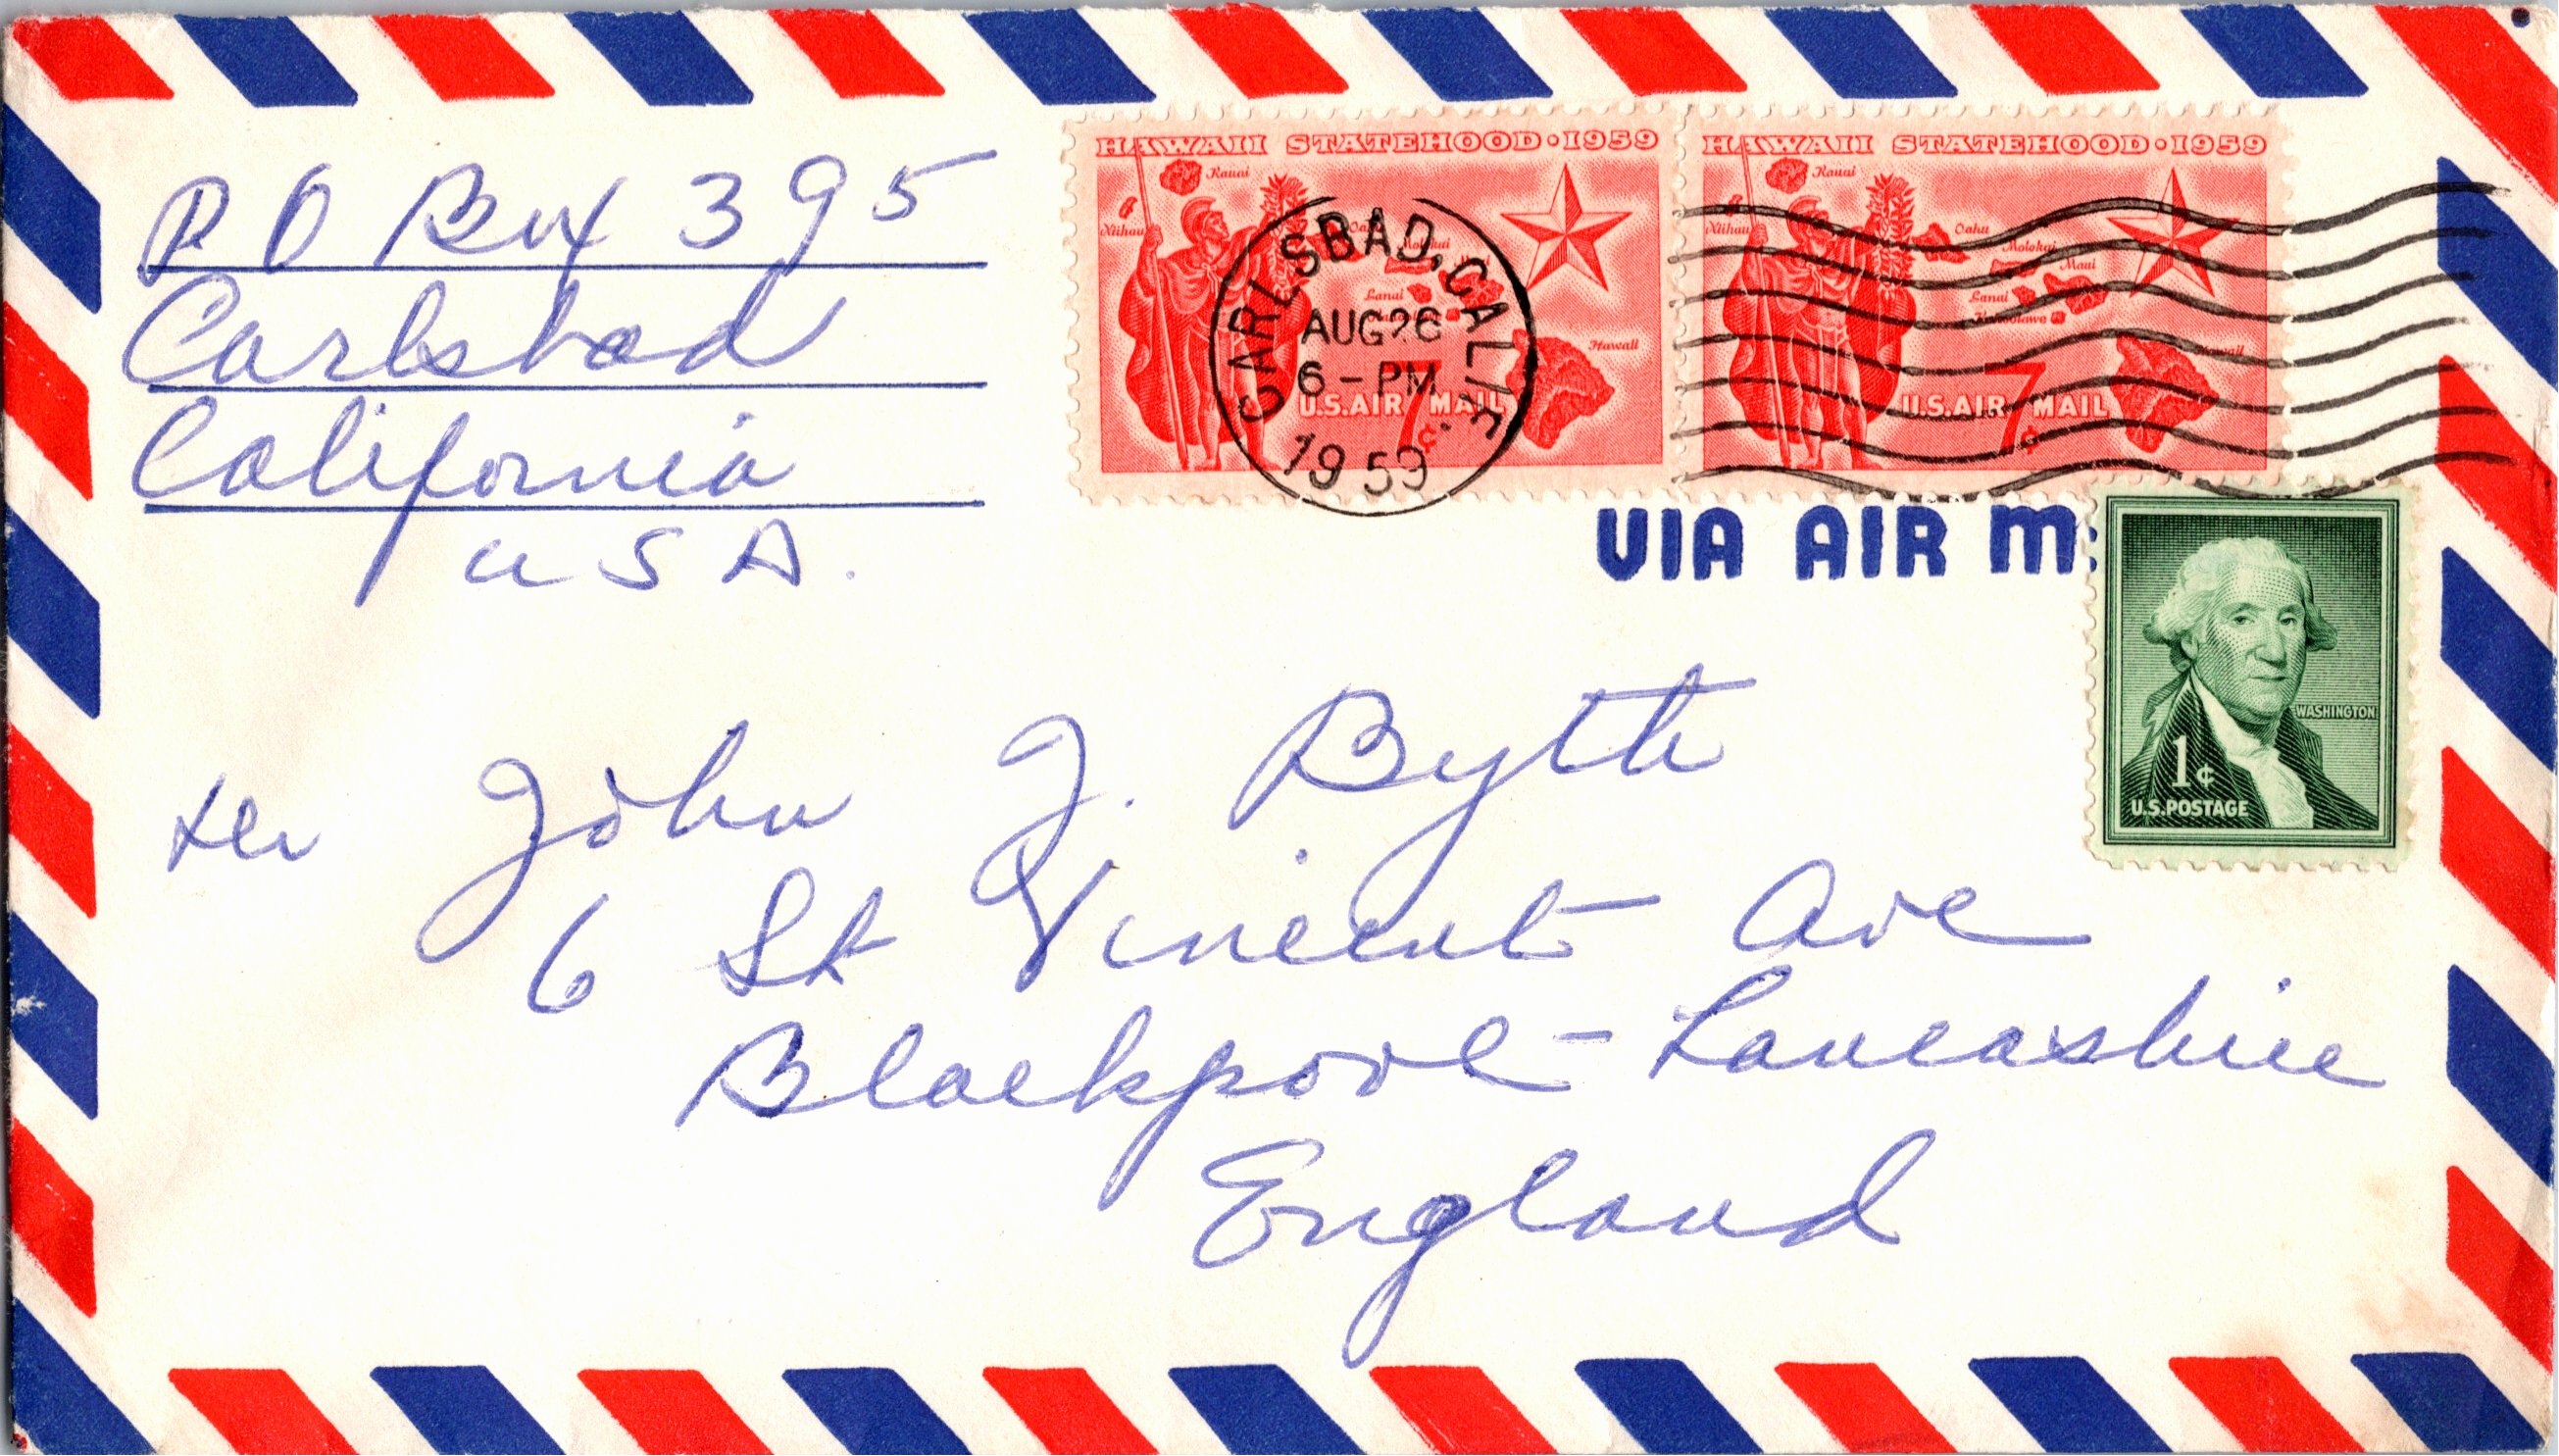 P O Box 395
Carlsbad
California
U S A.
HAWAII STATEHOOD · 1959
Kauai
Niihau
Oahu
Molokai
Lanai
Hawaii
U.S. AIR MAIL
7¢
HAWAII STATEHOOD · 1959
Kauai
Niihau
Oahu
Molokai
Maui
Lanai
Kahoolawe
Hawaii
U.S. AIR MAIL
7¢
CARLSBAD, CALIF.
AUG 26
6 - PM
1959
VIA AIR M
WASHINGTON
1¢
U.S. POSTAGE
John J. Byth
6 St Vincent Ave
Blackpool - Lancashire
England